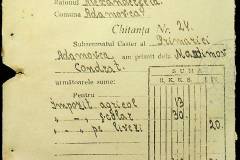 Raionul Alexandreni
Comuna Adamovca
Chitanța Nr. 24.
Subsemnatul Casier al Primăriei
Adamovca am primit dela Maximov
Condrat.
următoarele sume:
SUMA
R.K.K.S.
Pentru
Impozit agricol 13
" " școlar 30.
" " pe livezi 20.